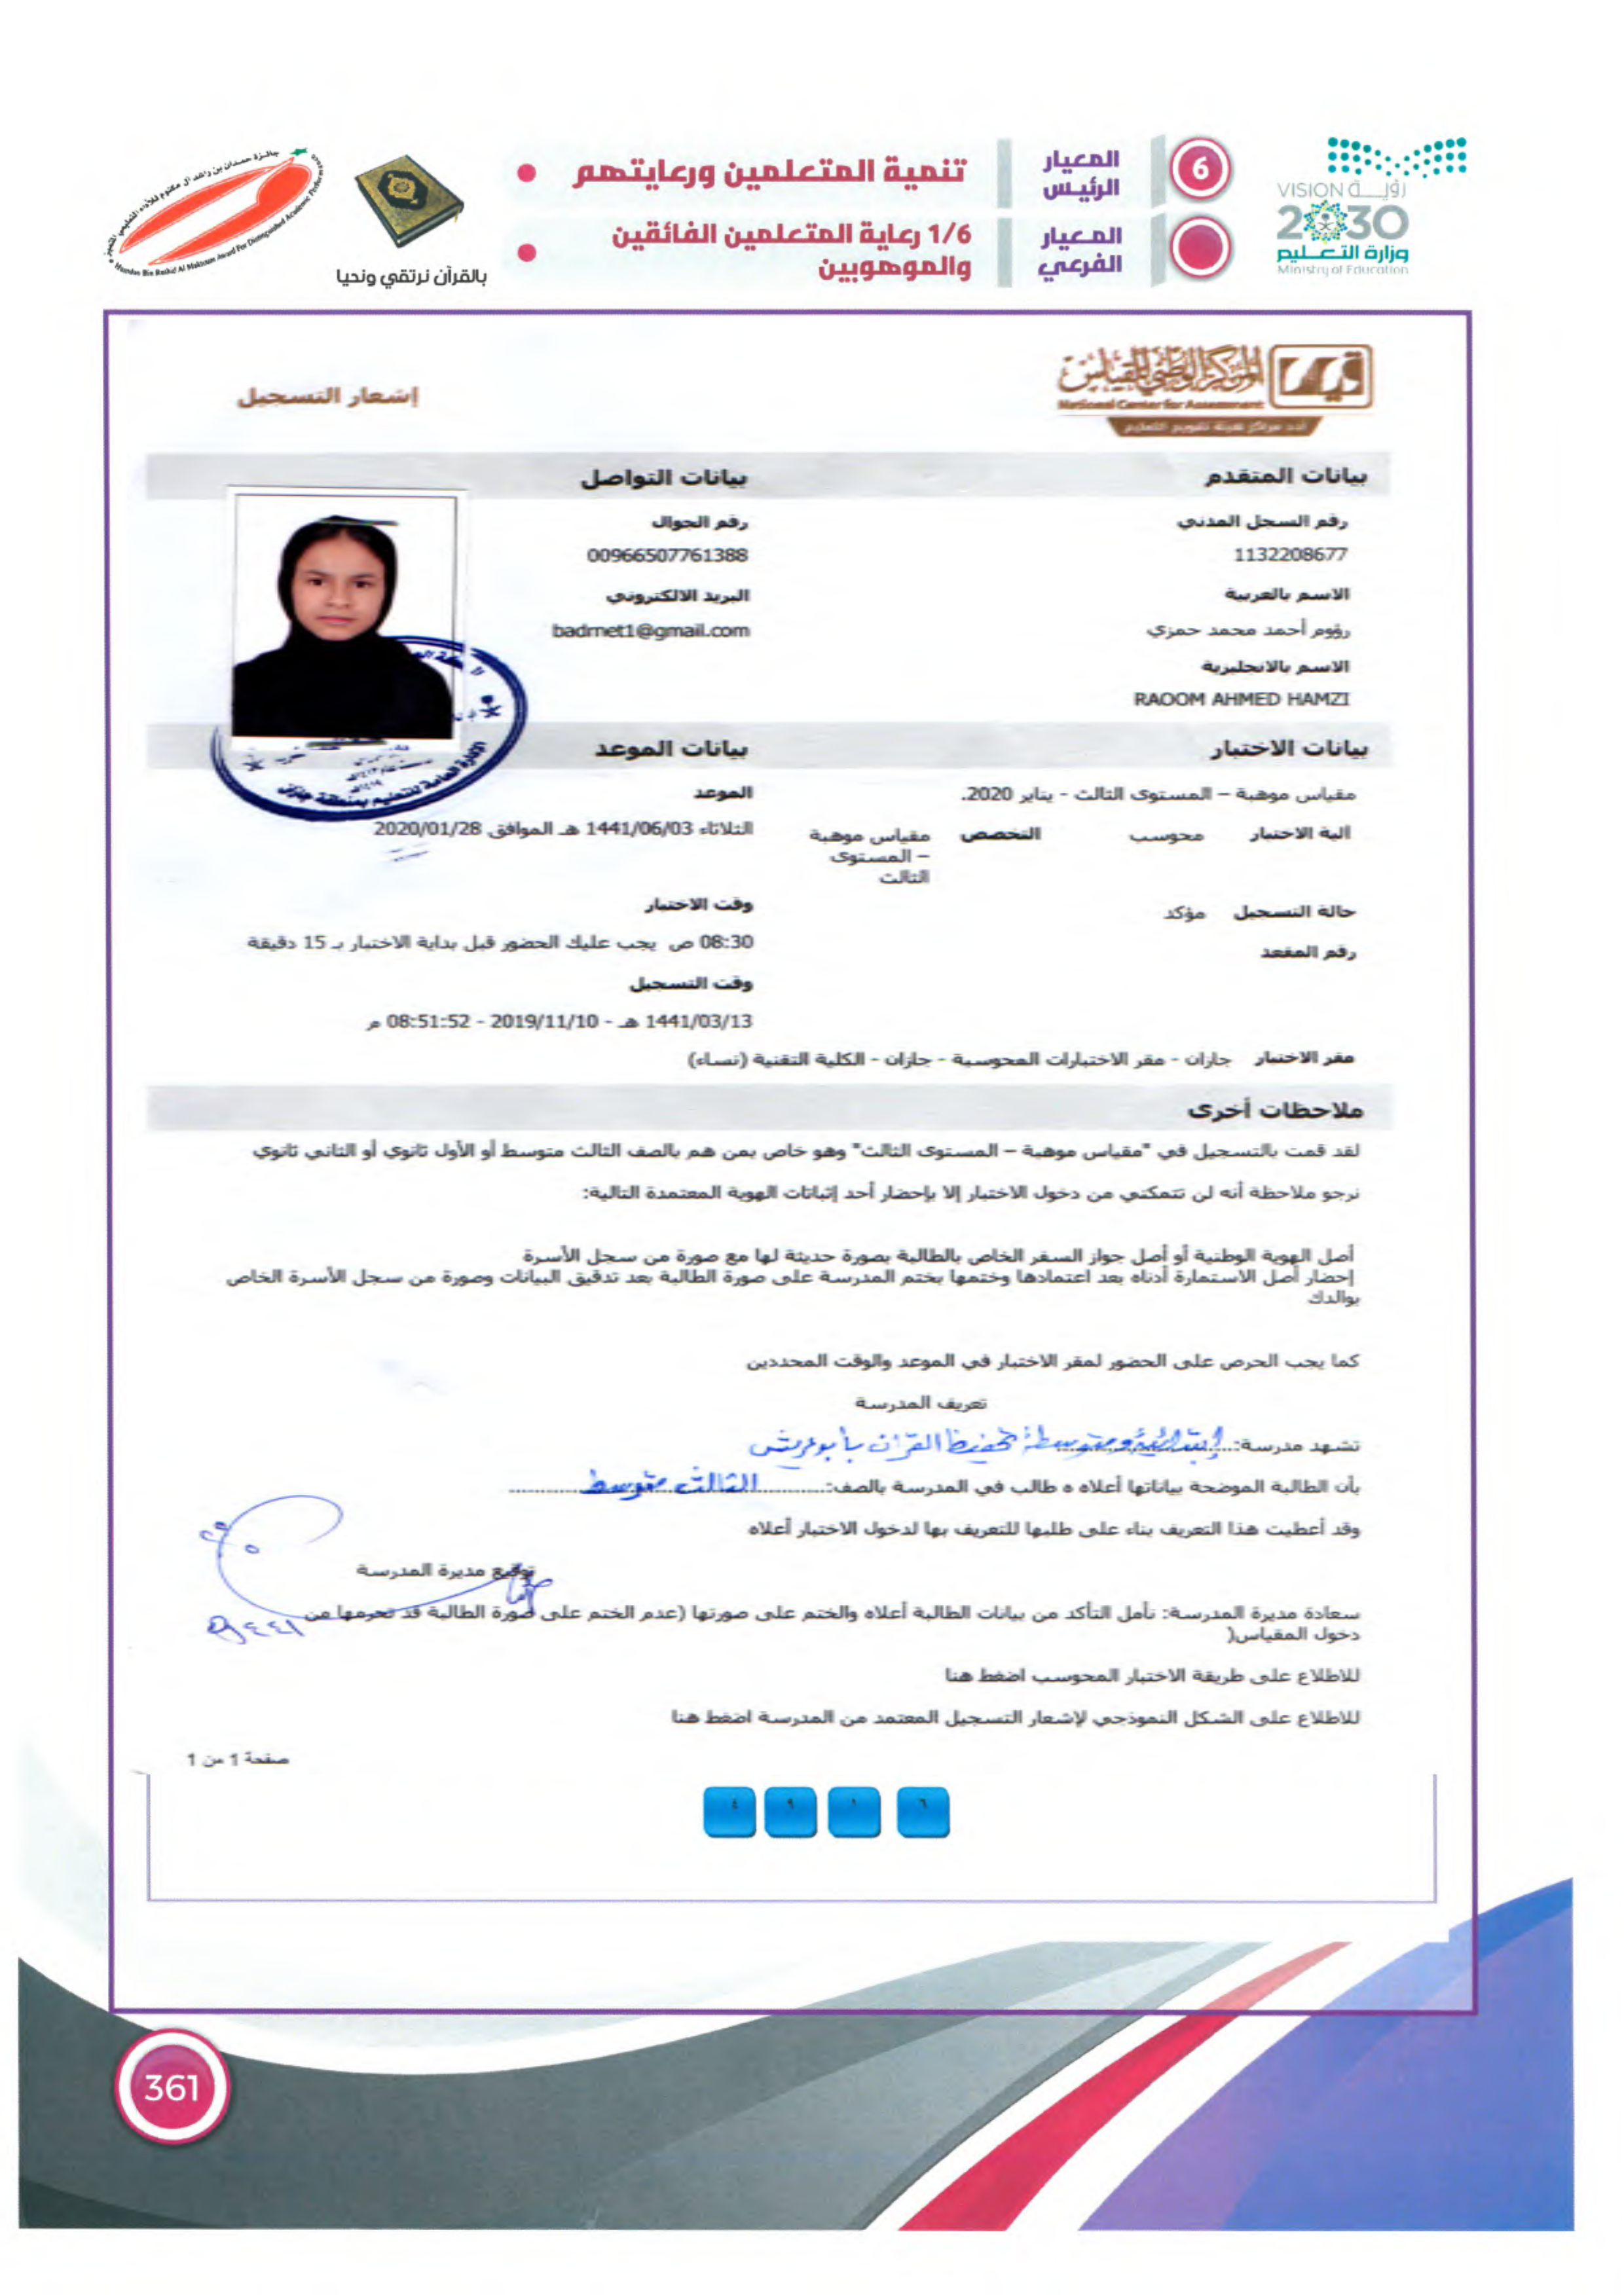 رؤيـــة VISION
2030
وزارة التعـــليم
Ministry of Education
6
المعيار الرئيس
تنمية المتعلمين ورعايتهم
المعيار الفرعي
1/6 رعاية المتعلمين الفائقين والموهوبين
بالقرآن نرتقي ونحيا
جائزة حمدان بن راشد آل مكتوم للأداء التعليمي المتميز
Hamdan Bin Rashid Al Maktoum Award For Distinguished Academic Performance
قياس
المركز الوطني للقياس
National Center for Assessment
أحد مراكز هيئة تقويم التعليم
إشعار التسجيل
بيانات المتقدم
رقم السجل المدني
1132208677
الاسم بالعربية
رؤوم أحمد محمد حمزي
الاسم بالانجليزية
RAOOM AHMED HAMZI
بيانات التواصل
رقم الجوال
00966507761388
البريد الالكتروني
badrnet1@gmail.com
بيانات الاختبار
مقياس موهبة – المستوى الثالث - يناير 2020.
آلية الاختبار محوسب التخصص مقياس موهبة
– المستوى
الثالث
حالة التسجيل مؤكد
رقم المقعد
بيانات الموعد
الموعد
الثلاثاء 1441/06/03 هـ الموافق 2020/01/28
وقت الاختبار
08:30 ص يجب عليك الحضور قبل بداية الاختبار بـ 15 دقيقة
وقت التسجيل
1441/03/13 هـ - 2019/11/10 - 08:51:52 م
مقر الاختبار جازان - مقر الاختبارات المحوسبة - جازان - الكلية التقنية (نساء)
الإدارة العامة للتعليم بمنطقة جازان
ملاحظات أخرى
لقد قمت بالتسجيل في "مقياس موهبة – المستوى الثالث" وهو خاص بمن هم بالصف الثالث متوسط أو الأول ثانوي أو الثاني ثانوي
نرجو ملاحظة أنه لن تتمكني من دخول الاختبار إلا بإحضار أحد إثباتات الهوية المعتمدة التالية:
أصل الهوية الوطنية أو أصل جواز السفر الخاص بالطالبة بصورة حديثة لها مع صورة من سجل الأسرة
إحضار أصل الاستمارة أدناه بعد اعتمادها وختمها بختم المدرسة على صورة الطالبة بعد تدقيق البيانات وصورة من سجل الأسرة الخاص
بوالدك
كما يجب الحرص على الحضور لمقر الاختبار في الموعد والوقت المحددين
تعريف المدرسة
تشهد مدرسة: إبتدائية ومتوسطة تحفيظ القرآن بأبوعريش
بأن الطالبة الموضحة بياناتها أعلاه ه طالب في المدرسة بالصف: الثالث متوسط
وقد أعطيت هذا التعريف بناء على طلبها للتعريف بها لدخول الاختبار أعلاه
توقيع مديرة المدرسة
سعادة مديرة المدرسة: نأمل التأكد من بيانات الطالبة أعلاه والختم على صورتها (عدم الختم على صورة الطالبة قد تحرمها من
دخول المقياس(
للاطلاع على طريقة الاختبار المحوسب اضغط هنا
للاطلاع على الشكل النموذجي لإشعار التسجيل المعتمد من المدرسة اضغط هنا
صفحة 1 من 1
٤ ٩ ١ ٦
361